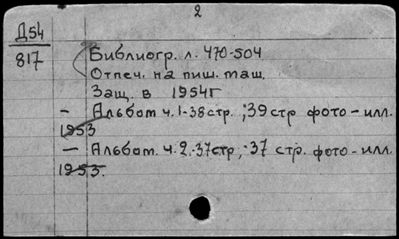 2
Д54
817
Библиогр. л. 470-504
Отпеч. на пиш. маш.
Защ. в 1954г
— Альбом ч. 1-38 стр.; 39 стр фото-илл.
1953
— Альбом. ч. 2.-37стр; -37 стр. фото-илл.
1953.